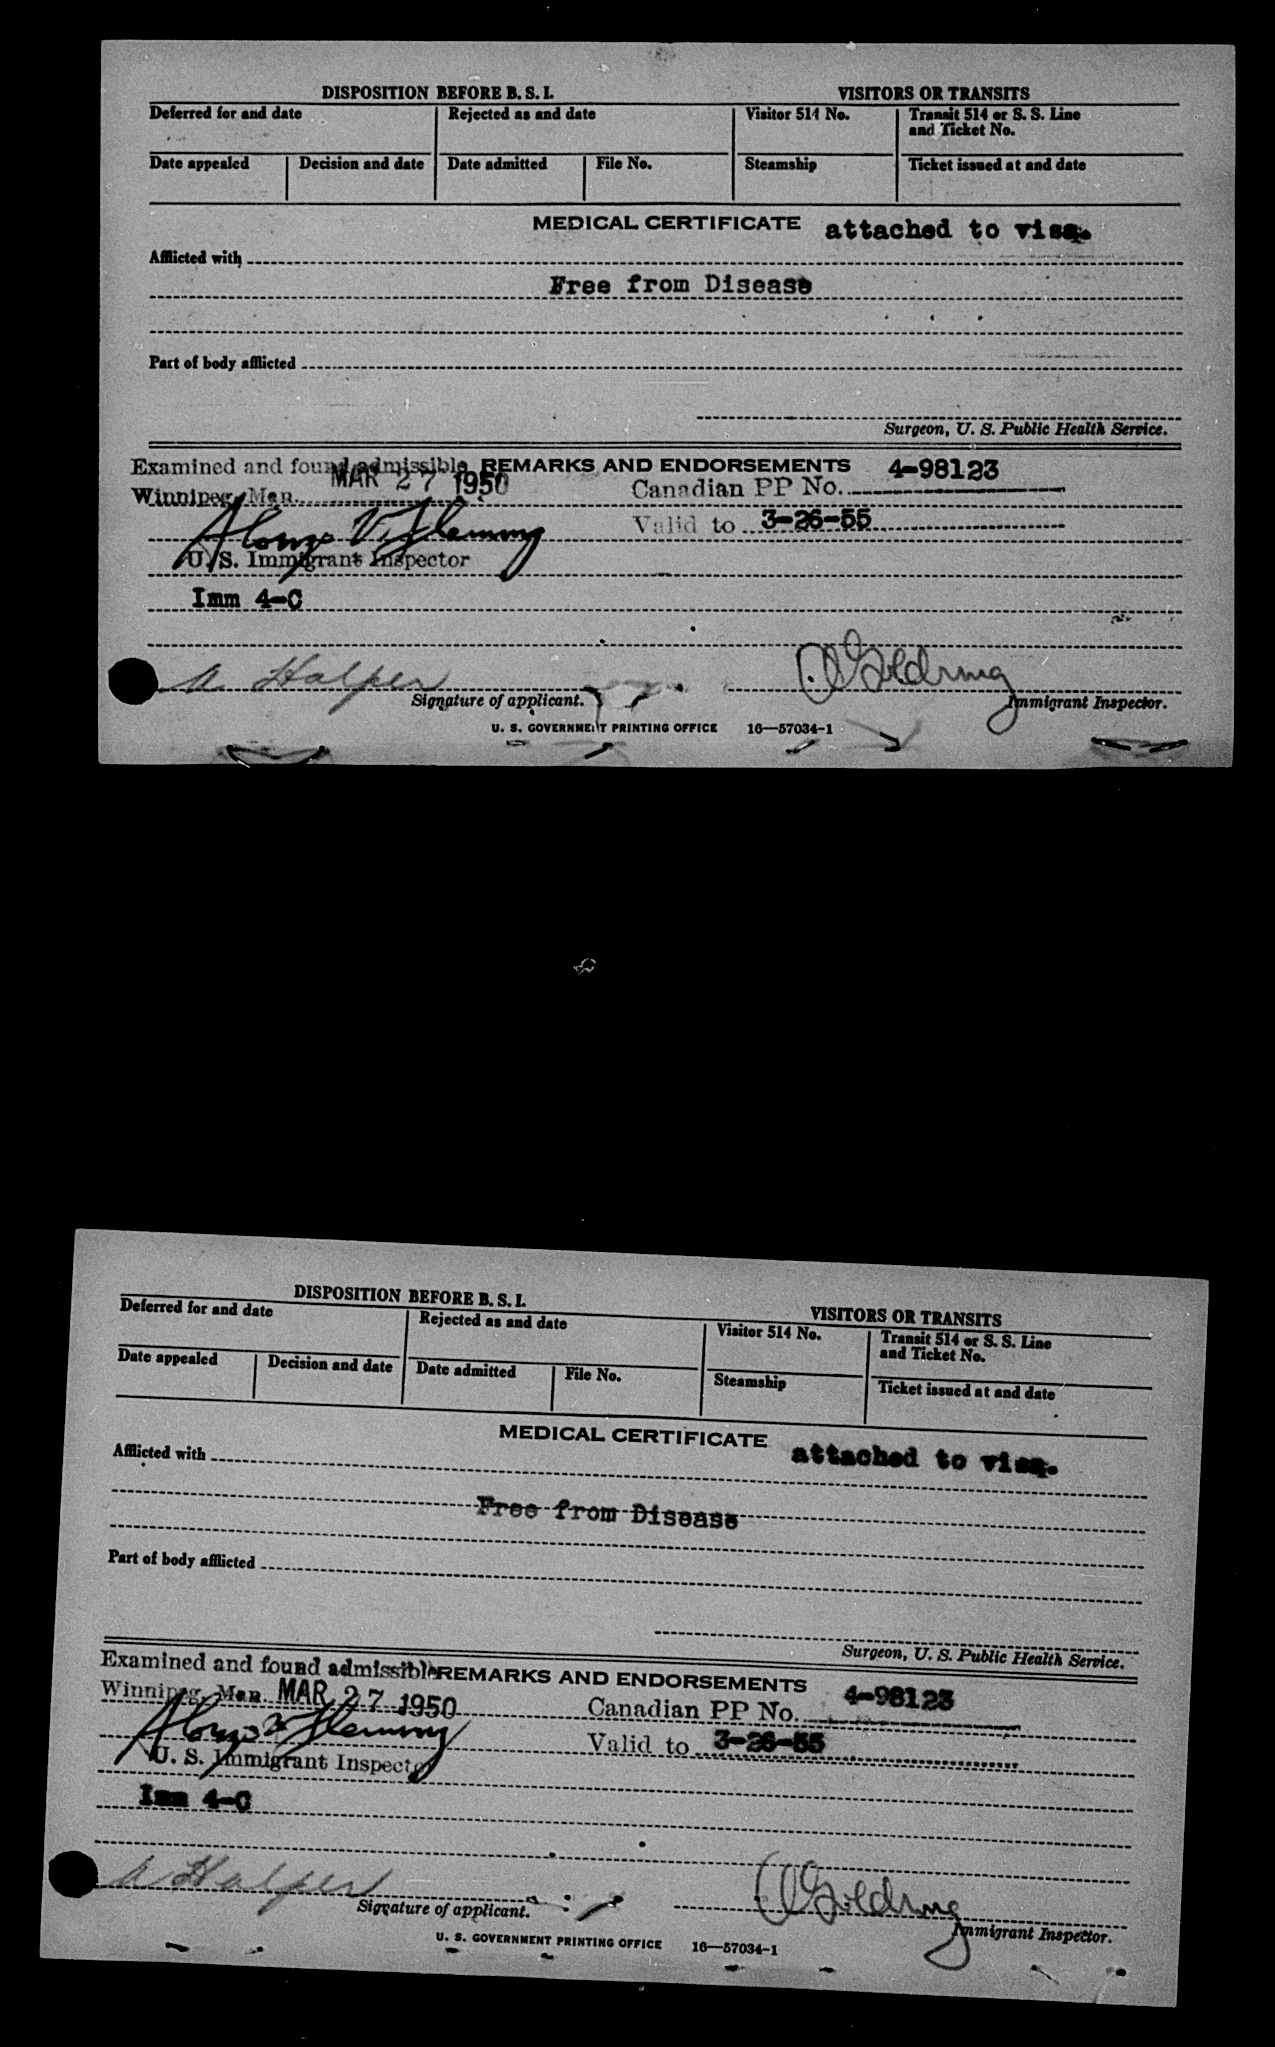 DISPOSITION BEFORE B. S. I. VISITORS OR TRANSITS
Deferred for and date Rejected as and date Visitor 514 No. Transit 514 or S. S. Line
and Ticket No.
Date appealed Decision and date Date admitted File No. Steamship Ticket issued at and date
MEDICAL CERTIFICATE attached to visa.
Afflicted with
Free from Disease
Part of body afflicted
Surgeon, U. S. Public Health Service.
Examined and found admissible REMARKS AND ENDORSEMENTS 4-98123
MAR 27 1950
Winnipeg, Man. Canadian PP No.
Alonzo V. Fleming Valid to 3-26-55
U. S. Immigrant Inspector
Imm 4-C
Halper Goldring
Signature of applicant. Immigrant Inspector.
U. S. GOVERNMENT PRINTING OFFICE 16—57034-1
DISPOSITION BEFORE B. S. I. VISITORS OR TRANSITS
Deferred for and date Rejected as and date Visitor 514 No. Transit 514 or S. S. Line
and Ticket No.
Date appealed Decision and date Date admitted File No. Steamship Ticket issued at and date
MEDICAL CERTIFICATE attached to visa.
Afflicted with
Free from Disease
Part of body afflicted
Surgeon, U. S. Public Health Service.
Examined and found admissible REMARKS AND ENDORSEMENTS 4-98123
Winnipeg, Man. MAR 27 1950 Canadian PP No.
Alonzo V. Fleming Valid to 3-26-55
U. S. Immigrant Inspector
Imm 4-C
Halper Goldring
Signature of applicant. Immigrant Inspector.
U. S. GOVERNMENT PRINTING OFFICE 16—57034-1